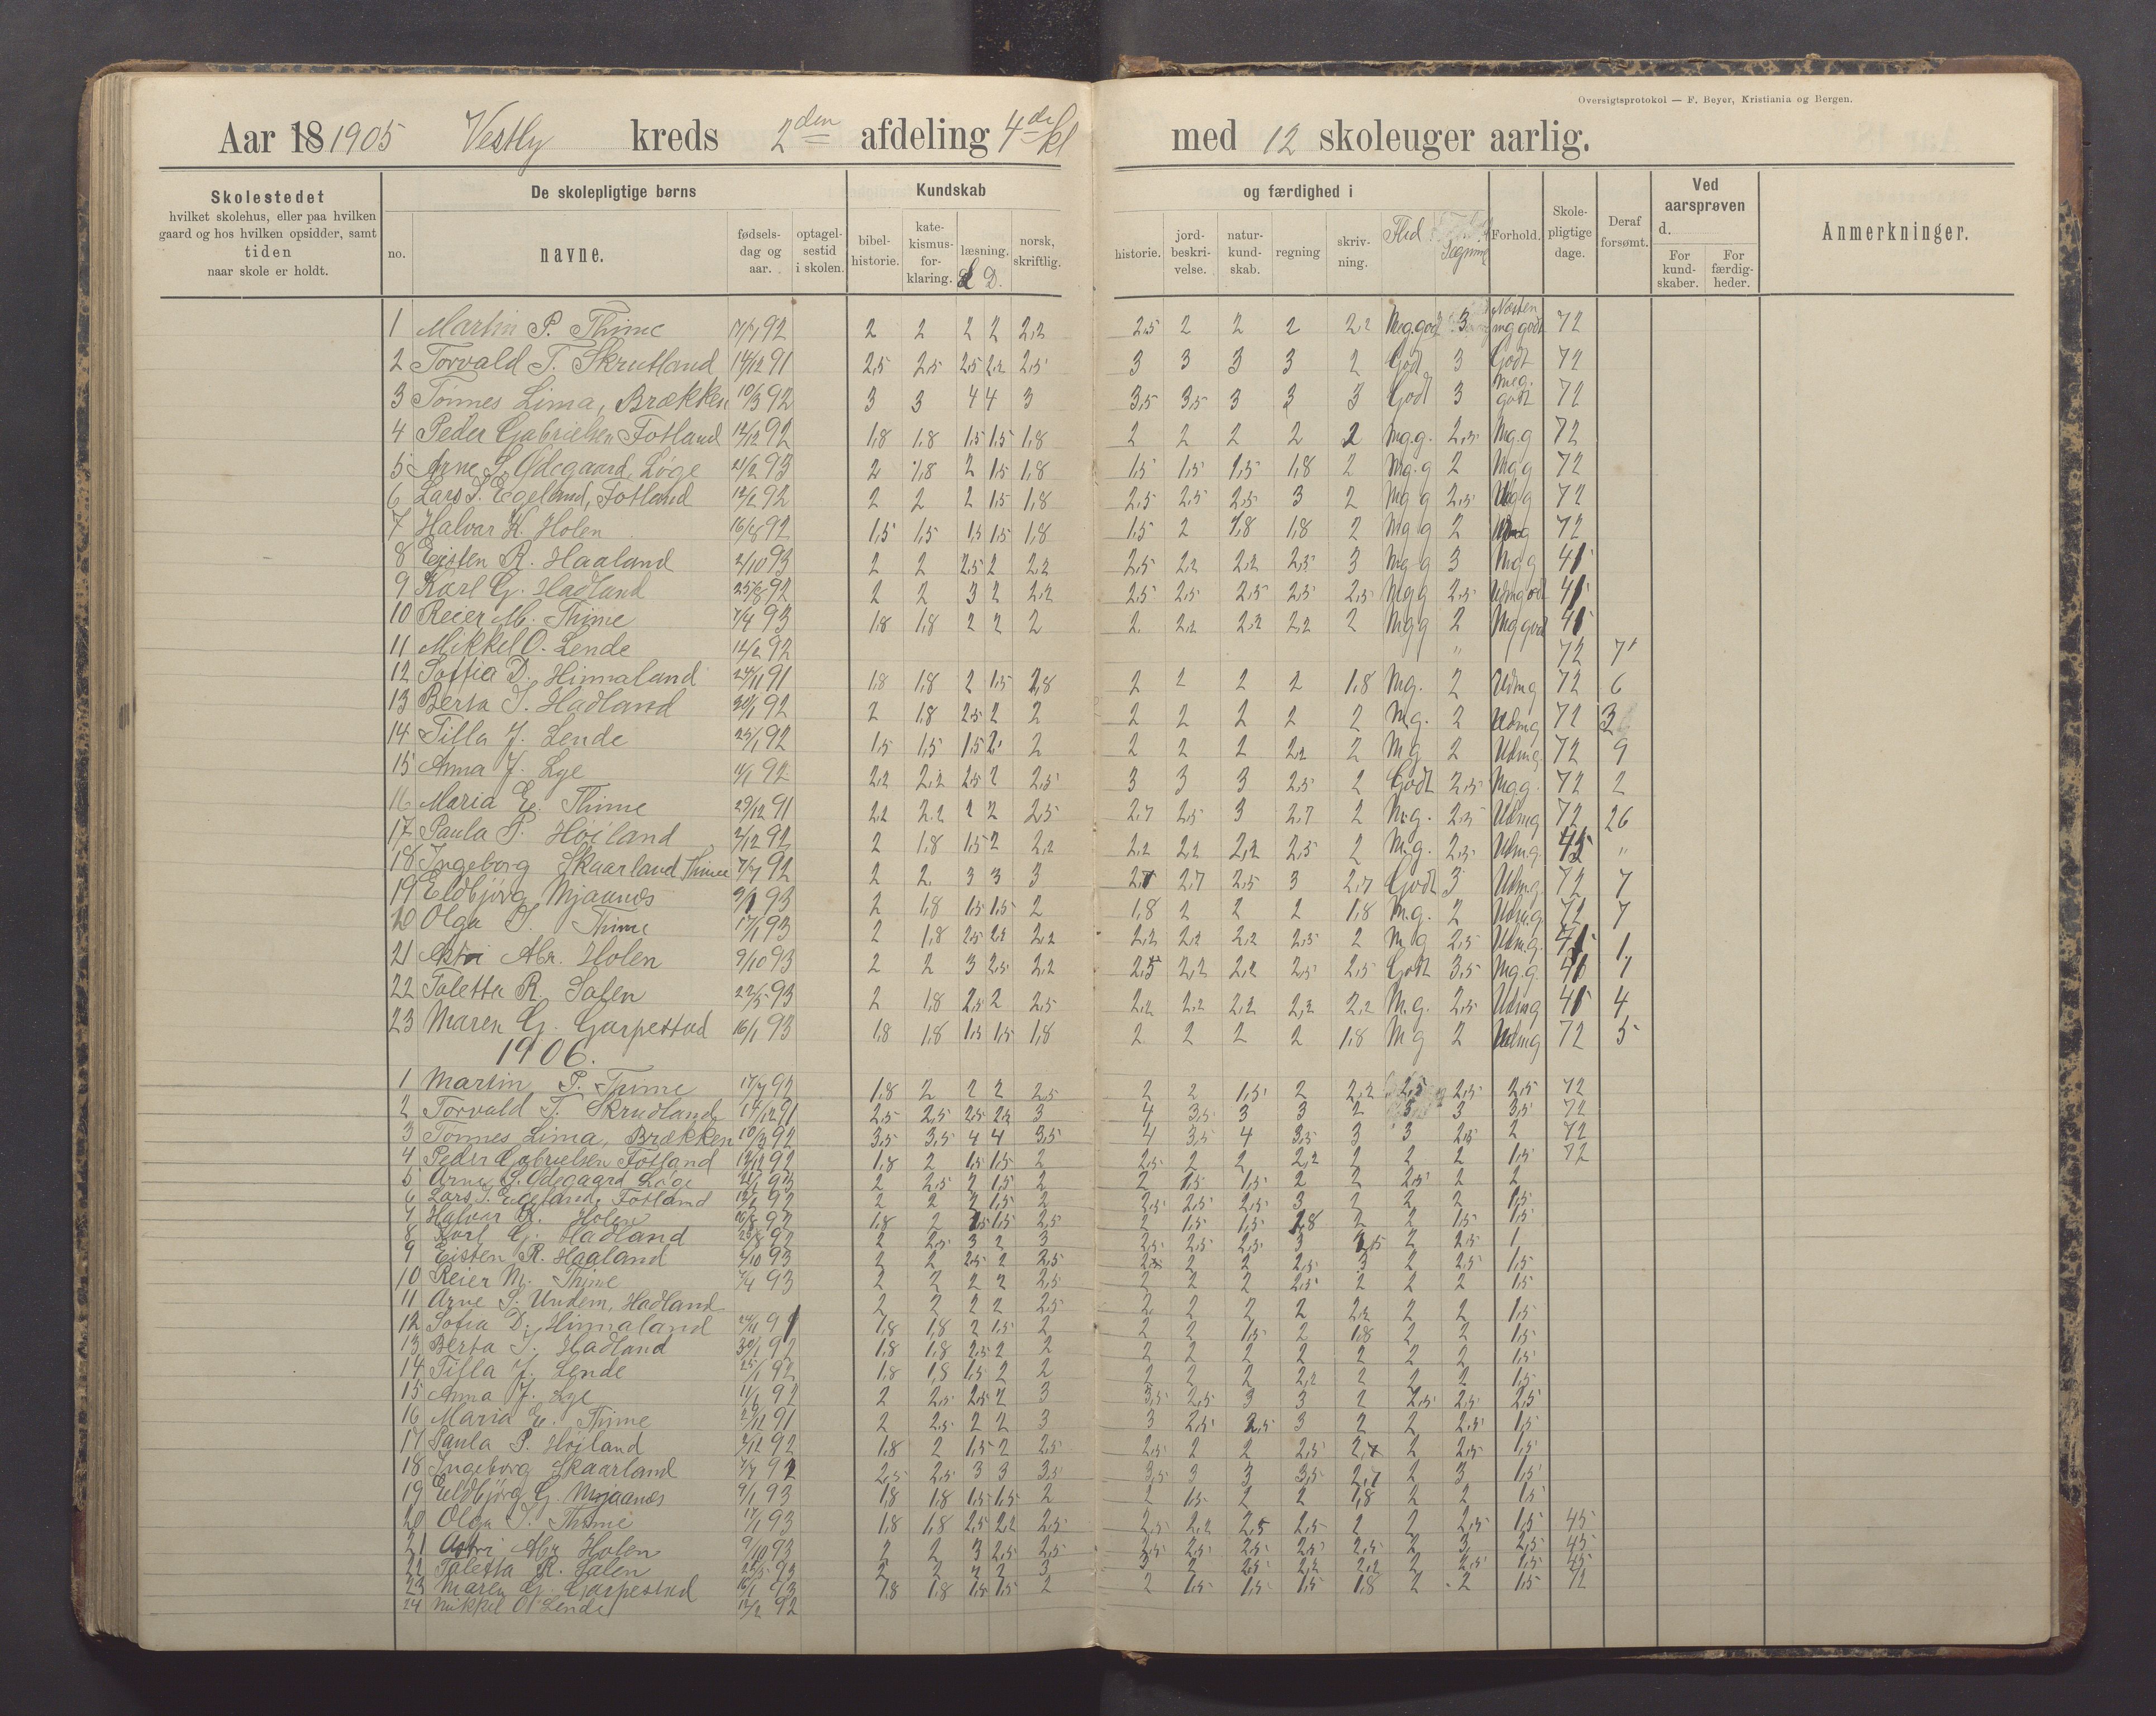 Oversigtsprotokol — F. Beyer, Kristiania og Bergen.
Aar 18 1905 Vestly kreds 2den afdeling 4de kl med 12 skoleuger aarlig.
Skolestedet
hvilket skolehus, eller paa hvilken
gaard og hos hvilken opsidder, samt
tiden
naar skole er holdt.
De skolepligtige børns
no.
navne.
fødsels-
dag og
aar.
optagel-
sestid
i skolen.
Kundskab
bibel-
historie.
kate-
kismus-
for-
klaring.
læsning.
D.
norsk,
skriftlig.
og færdighed i
historie.
jord-
beskri-
velse.
natur-
kund-
skab.
regning
skriv-
ning.
Flid
Tegning
Forhold.
Skole-
pligtige
dage.
Deraf
forsømt.
Ved
aarsprøven
d.
For
kund-
skaber.
For
færdig-
heder.
Anmerkninger.
1 Martin P. Thime 17/7 92 2 2 2 2 2,2 2,5 2 2 2 2,2 Meg.godt 3 Næsten mg godt 72
2 Torvald T. Skrutland 14/12 91 2,5 2,5 2,5 2,2 2,5 3 3 3 3 2 Godt 3 Godt 72
3 Tønnes Lima, Brækken 10/3 92 3 3 4 4 3 3,5 3,5 3 3 3 Godt 3 meg. godt 72
4 Peder Gabrielsen Fotland 12/12 92 1,8 1,8 1,5 1,5 1,8 2 2 2 2 2 Mg.g. 2,5 Mg.g 72
5 Arne S. Ødegaard, Løge 21/2 93 2 1,8 2 1,5 1,8 1,5 1,5 1,5 1,8 2 Mg.g 2 Mgg 72
6 Lars T. Egeland, Fotland 12/2 92 2 2 2 1,5 1,8 2,5 2,5 2,5 3 2 Mg g 2,5 Mgg 72
7 Halvar K. Holen 16/8 92 1,5 1,5 1,5 1,5 1,8 1,5 2 1,8 1,8 2 Mg g 2 72
8 Eisten R. Haaland 2/10 93 2 2 2,5 2 2,2 2,5 2,2 2,2 2,5 3 Mg g 3 Mgg 41
9 Karl G. Hadland 25/8 92 2 2 3 2 2,2 2,5 2,5 2,5 2,5 2,5 Mgg 2,5 Udmgodt 41
10 Reier M. Thime 7/4 93 1,8 1,8 2 2 2 2 2,2 2,2 2,2 2 Mgg 2 Mg godt 41
11 Mikkel O. Lende 12/2 92 " 72 7
12 Soffia D. Hinnaland 24/11 91 1,8 1,8 2 1,5 1,8 2 2 2 2 1,8 Mg. 2 Udmg 72 6
13 Berta T. Hadland 30/1 92 2 1,8 2,5 2 2 2 2 2 2 2 M.g. 2 Udmg 72 3
14 Tilla J. Lende 25/1 92 1,5 1,5 1,5 2 2 2 2 2 2,2 2 Mg 2 Udmg. 72 9
15 Anna J. Lye 11/1 92 2,2 2,2 2,5 2 2,5 3 3 3 2,5 2 Godt 2,5 Mgg. 72 2
16 Maria E. Thime 29/12 91 2,2 2,2 2 2 2,5 2,7 2,5 3 2,7 2 M.g. 2,5 Udmg 72 26
17 Paula P. Höiland 2/12 92 2 1,8 1,5 2 2,2 2,2 2,2 2,2 2,5 2 M.g. 2,5 Udm.g. 45 "
18 Ingeborg Skaarland Thime 7/7 92 2 2 3 3 3 2,7 2,7 2,5 3 2,7 Godt 3 Udm.g. 72 7
19 Eldbjörg Mjaanes 9/1 93 2 1,8 1,5 1,5 2 1,8 2 2 2 1,8 M.g. 2 Udm.g. 72 7
20 Olga T. Thime 17/1 93 2 1,8 2,5 2,2 2,2 2,2 2,2 2,2 2,5 2 M g 2,5 Udm.g. 41 1
21 Astri Abr. Holen 9/10 93 2 2 3 2,5 2,2 2,5 2,2 2,2 2,5 2,5 Godt 3,5 Mg.g 1
22 Taletta R. Salen 22/5 93 2 1,8 2,5 2 2,5 2,2 2,2 2,2 2,2 2,2 M.g. 2,5 Udmg 41 4
23 Maren G. Garpestad 16/1 93 1,8 1,8 1,5 1,5 1,8 2 2 2 2 1,8 M g 2 Udmg 72 5
1906.
1 Martin P. Thime 17/7 92 1,8 2 2 2 2,5 2 2 1,5 2 2,2 2,5 2,5 2,5 72
2 Torvald T. Skrudland 14/12 91 2,5 2,5 2,5 2,2 3 4 3,5 3 3 2 3 3 3,5 72
3 Tønnes Lima, Brækken 10/3 92 3,5 3,5 4 4 3,5 4 3,5 4 3,5 3 3 2,5 2 72
4 Peder Gabrielsen Fotland 12/12 92 1,8 2 1,5 1,5 2 2,5 2 2 2,2 2 2 2 1,5 72
5 Arne S. Ødegaard Løge 21/2 93 2 2,5 2 1,5 2 2 1,5 1,5 2 2 2,5 2 2
6 Lars T. Egeland, Fotland 12/2 92 2 2 2 1,5 2 2,5 2,5 2,5 3 2 2 2 1,5
7 Halvar K. Holen 16/8 92 1,8 2 1,5 1,5 2,5 2 1,5 1,5 1,8 2 2 1,5 1,5
8 Karl G. Hadland 25/8 92 2 2,5 3 2 3 2,5 2,5 2,5 3 2,5 2 2,5 1
9 Eisten R. Haaland 2/10 93 2 2 2,5 2 2,5 2,2 2 2 2,5 3 2 2,5 1,5
10 Reier M. Thime 7/4 93 2 2 2 2 2,5 2 2 2 2,5 2 2 2 1,5
11 Arne S. Undem, Hadland 2 2 2 2 2,5 2 2 2 2 2,2 2 2 1,5
12 Sofia D. Hinnaland 24/11 91 1,8 1,8 2 1,5 2 2 2 1,5 2 1,8 2 2 1,5
13 Berta T. Hadland 30/1 92 1,8 1,8 2,5 2 2 2 2 2 2 2 2 2 1,5
14 Tilla J. Lende 25/1 92 1,8 1,8 1,5 2 2 2 2 2 2,2 2 2 2 1,5
15 Anna J. Lye 11/1 92 2 2,5 2,5 2 3 3,5 2,5 3 3 2 2,5 2,5 2,5
16 Maria E. Thime 29/12 91 2 2,5 2 2 3 3 2,5 2,5 3 2 2 2,5 1,5
17 Paula P. Höiland 2/12 92 1,8 2 1,5 2 2,5 2,5 2 2 2,5 2,7 2 2,5 1,5
18 Ingeborg Skaarland 7/7 92 2,5 2,5 3 3 3,5 3,5 3 3 3,5 2,7 2 3 1,5
19 Eldbjörg G. Mjaanes 9/1 93 1,8 1,8 1,5 1,5 2 2 1,5 2 2 1,8 2 2 1,5
20 Olga T. Thime 17/1 93 1,8 1,8 2,5 2,2 2,5 2,5 2,2 2,5 2,5 2 2 2,5 1,5 45
21 Astri Abr. Holen 9/10 93 2 2 3 2,5 2,5 2,5 2,5 2,5 2,5 2,5 2 3 2,5 45
22 Taletta R. Salen 22/5 93 2 2 2 2 3 3 2 2,5 2,2 2,2 2 2,5 1,5 45
23 Maren G. Garpestad 16/1 93 1,8 1,8 1,5 1,5 2 2 1,5 1,5 1,5 1,8 2 2 1,5 72
24 Mikkel O. Lende 12/2 92